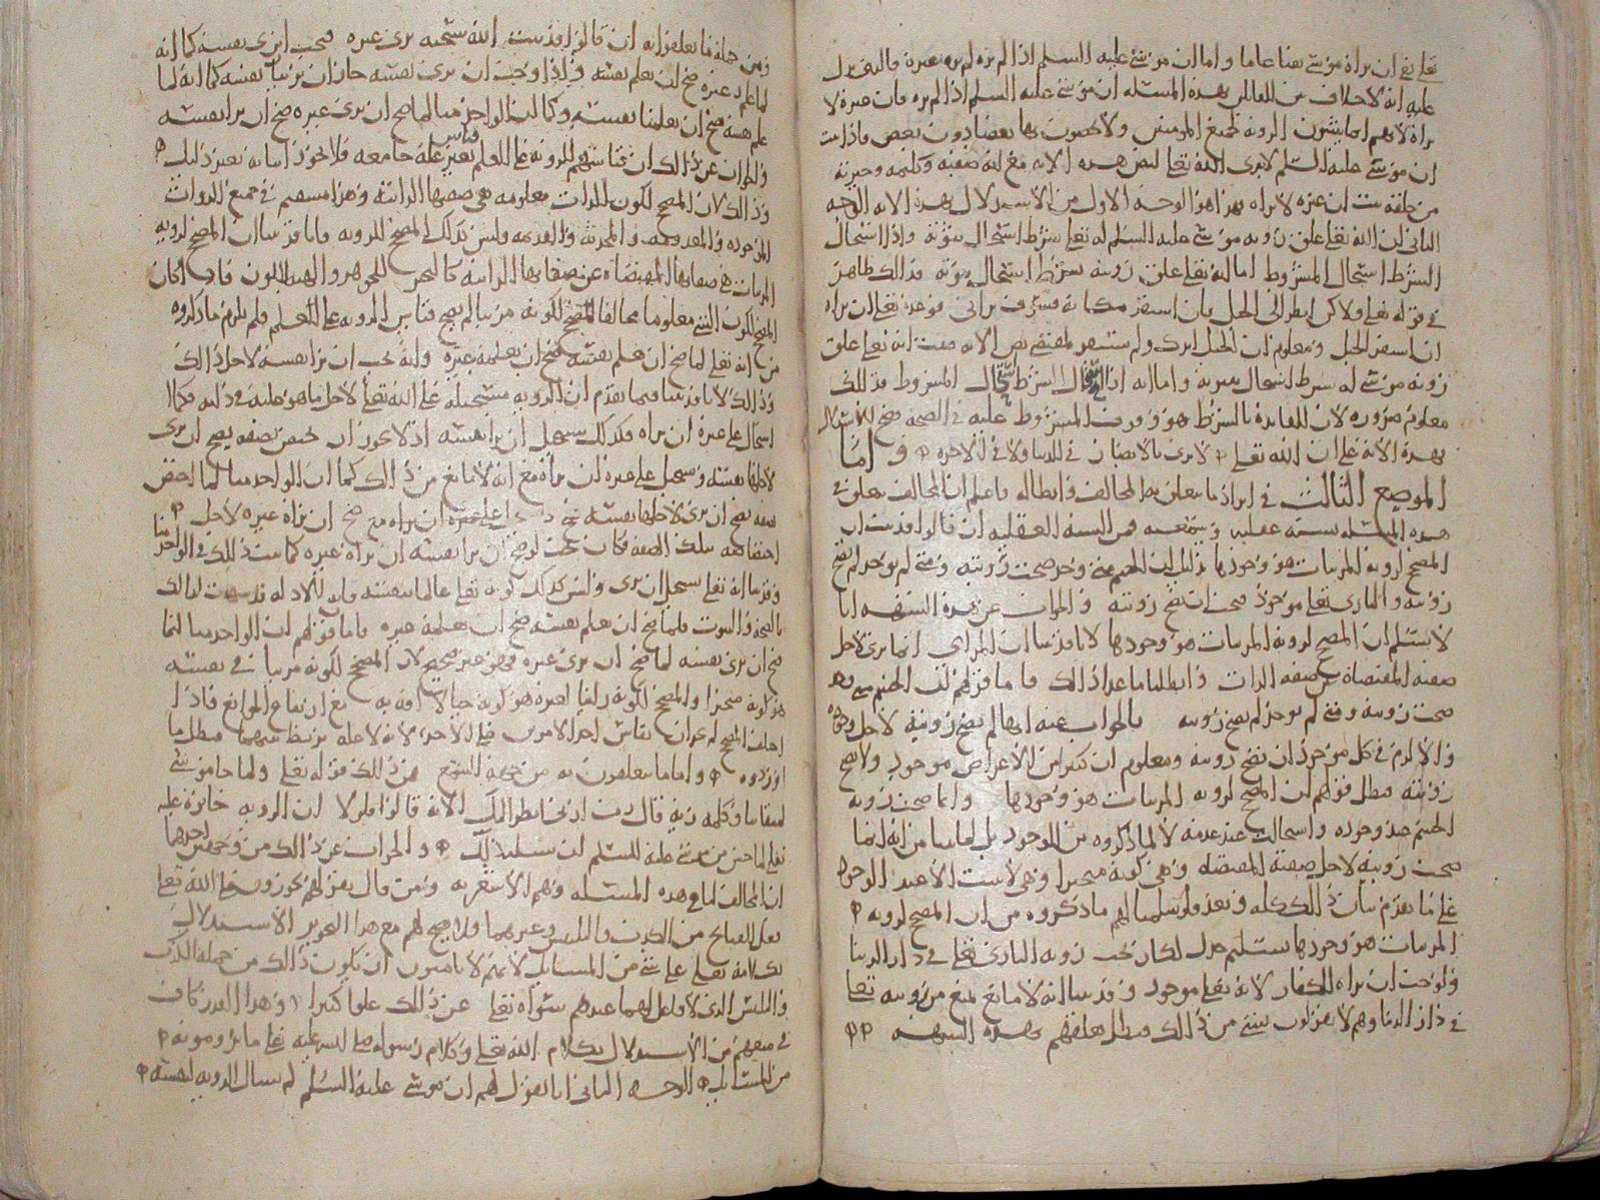 تعلى نفى ان يراه موسى نفيا عاما واما ان موسى عليه السلم اذا لم يره لم يره غيره فالذى يدل
عليه انه لا خلاف بين القائلين بهذه المسئله ان موسى عليه السلم اذا لم يره فان غيره لا
يراه لانهم اما يثبتون الرويه لجميع المومنين ولا يخصون بها بعضا دون بعض فاذا ثبت
ان موسى عليه السلم لا يرى الله تعلى لنص هذه الايه مع انه صفيه وكليمه وخيرته
من خلقه ثبت ان غيره لا يراه فهذا هو الوجه الاول من الاستدلال بهذه الايه الوجه
الثانى ان الله تعلى علق رويه موسى عليه السلم له تعلى بشرط استحال ثبوته واذا استحال
الشرط استحال المشروط اما انه تعلى علق رويته بشرط استحال ثبوته فذلك ظاهر
فى قوله تعلى ولاكن انظر الى الجبل فان استقر مكانه فسوف ترانى فوعده تعلى ان يراه
ان استقر الجبل ومعلوم ان الجبل اندك ولم يستقر لمقتضى نص الايه فثبت انه تعلى علق
رويه موسى له بشرط استحال ثبوته واما انه اذا استحال الشرط استحال المشروط فذلك
معلوم ضروره لان الفايده بالشرط هو وقوف المشروط عليه فى الصحه فصح الاستدلال
بهذه الايه على ان الله تعلى لا يرى بالابصار فى الدنيا ولا فى الاخره واما
الموضع الثالث فى ايراد ما يتعلق به المخالف وابطاله فاعلم ان المخالف يتعلق فى
هذه المسئله بشبه عقليه وسمعيه فمن الشبه العقليه ان قالوا قد ثبت ان
المصحح لرويه المرئيات هو وجودها بدليل ان الجسم متى وجد صحت رويته ومتى لم يوجد لم تصح
رويته والبارى تعلى موجود فيجب ان تصح رويته والجواب عن هذه الشبهه انا
لا نسلم ان المصحح لرويه المرئيات هو وجودها لانا قد بينا ان المراى انما يرى لاجل
صفته المقتضاه عن صفه الذات وابطلنا ما عدا ذلك فاما قولهم ان الجسم متى وجد
صحت رويته ومتى لم يوجد لم تصح رويته فالجواب عنه انها لم تصح رويته لاجل وجوده
والا لزم فى كل موجود ان تصح رويته ومعلوم ان كثيرا من الاعراض موجود ولا تصح
رويته فبطل قولهم ان المصحح لرويه المرئيات هو وجودها وانما صحت رويه
الجسم عند وجوده واستحالت عند عدمه لا لما ذكروه من الوجود بل لما بينا من انه انما
صحت رويته لاجل صفته المقتضاه وهى كونه متحيزا وهى لا تثبت الا عند الوجود
على ما تقدم بيان ذلك كله وبعد فلو سلمنا لهم ما ذكروه من ان المصحح لرويه
المرئيات هو وجودها تسليم جدل لكان يجب رويه البارى تعلى فى دار الدنيا
ولوجب ان يراه الكفار لانه تعلى موجود وقد بينا انه لا مانع يمنع من رويته تعلى
فى دار الدنيا وهم لا يقولون بشى من ذلك فبطل تعلقهم بهذه الشبهه
ومن جمله ما تعلقوا به ان قالوا قد ثبت ان الله سبحنه يرى غيره فيجب ان يرى نفسه كما انه
لما علم غيره صح ان يعلم نفسه واذا وجب ان يرى نفسه جاز ان نرى نفسه كما انه لما
علم نفسه صح ان يعلمنا نفسه وكما ان الواحد منا لما صح ان يرى غيره صح ان يرا نفسه
والجواب عن ذلك ان قياسهم للرويه على العلم قياس بغير عله جامعه فلا يجوز اثباته بغير ذلك
وذلك لان المصحح لكون الذات معلومه هى صفتها الذاتيه وهذا مستمر فى جميع الذوات
الموجوده والمعدومه والمحدثه والقديمه وليس كذلك المصحح للرويه فانا قد بينا ان المصحح لرويه
المرئيات هو صفاتها المقتضاه عن صفاتها الذاتيه كالتحيز للجوهر والهيئه للون فاذا كان
المصحح لكون الشى معلوما مخالفا للمصحح لكونه مرئيا لم يصح قياس الرويه على العلم فلم يلزم ما ذكروه
من انه تعلى لما صح ان يعلم نفسه صح ان يعلمه غيره وانه يجب ان يرا نفسه لاجل ذلك
وذلك لانا قد بينا فيما تقدم ان الرويه مستحيله على الله تعلى لاجل ما هو عليه فى ذاته فكما
استحال على غيره ان يراه فكذلك يستحيل ان يرا نفسه اذ لا يجوز ان يختص بصفه يصح ان يرى
لاجلها نفسه ويستحيل على غيره ان يراه مع انه لا مانع من ذلك كما ان الواحد منا لما اختص
بصفه يصح ان يرى لاجلها نفسه ان يراه غيره لاجل
اختصاصه بتلك الصفه فكان يجب لو صح ان يرا نفسه ان يراه غيره كما ثبت ذلك فى الواحد منا
وقد بينا انه تعلى يستحيل ان يرى وليس كذلك كونه تعلى عالما بنفسه فان الادله قد شهدت لذلك
بالصحه والثبوت فلما صح ان يعلم نفسه صح ان يعلمه غيره فاما قولهم ان الواحد منا انما
صح ان يرى نفسه لما صح ان يرى غيره فهو غير صحيح لان المصحح لكونه مرئيا فى نفسه
هو كونه متحيزا والمصحح لكونه رائيا لغيره هو كونه حيا لا افه به مع ارتفاع الموانع فاذا
اختلف المصحح لم يجز ان يقاس احد الامرين على الاخر لانه لا عله تربط بينهما فبطل ما
اوردوه واما ما يتعلقون به من جهه السمع فمن ذلك قوله تعلى ولما جا موسى
لميقاتنا وكلمه ربه قال رب ارنى انظر اليك الايه قالوا فلولا ان الرويه جائزه عليه
تعلى لما حسن من موسى عليه السلم ان يسئل ذلك والجواب عن ذلك من وجهين احدهما
ان المخالف لنا فى هذه المسئله وهم الاشعريه ومن قال بقولهم يجوزون على الله تعلى
فعل القبائح من الكذب والتلبيس وغيرهما فلا يصح لهم مع هذا التجويز الاستدلال
بكلامه تعلى على شى من المسائل لانهم لا يامنون ان يكون ذلك من جمله الكذب
والتلبيس الذى لا فاعل لهما عندهم سواه تعلى عن ذلك علوا كبيرا وهذا القدر كاف
فى منعهم من الاستدلال بكلام الله تعلى وكلام رسوله صلى الله عليه على ما يرومونه
من المسائل الوجه الثانى انا نقول لهم ان موسى عليه السلم لم يسال الرويه لنفسه